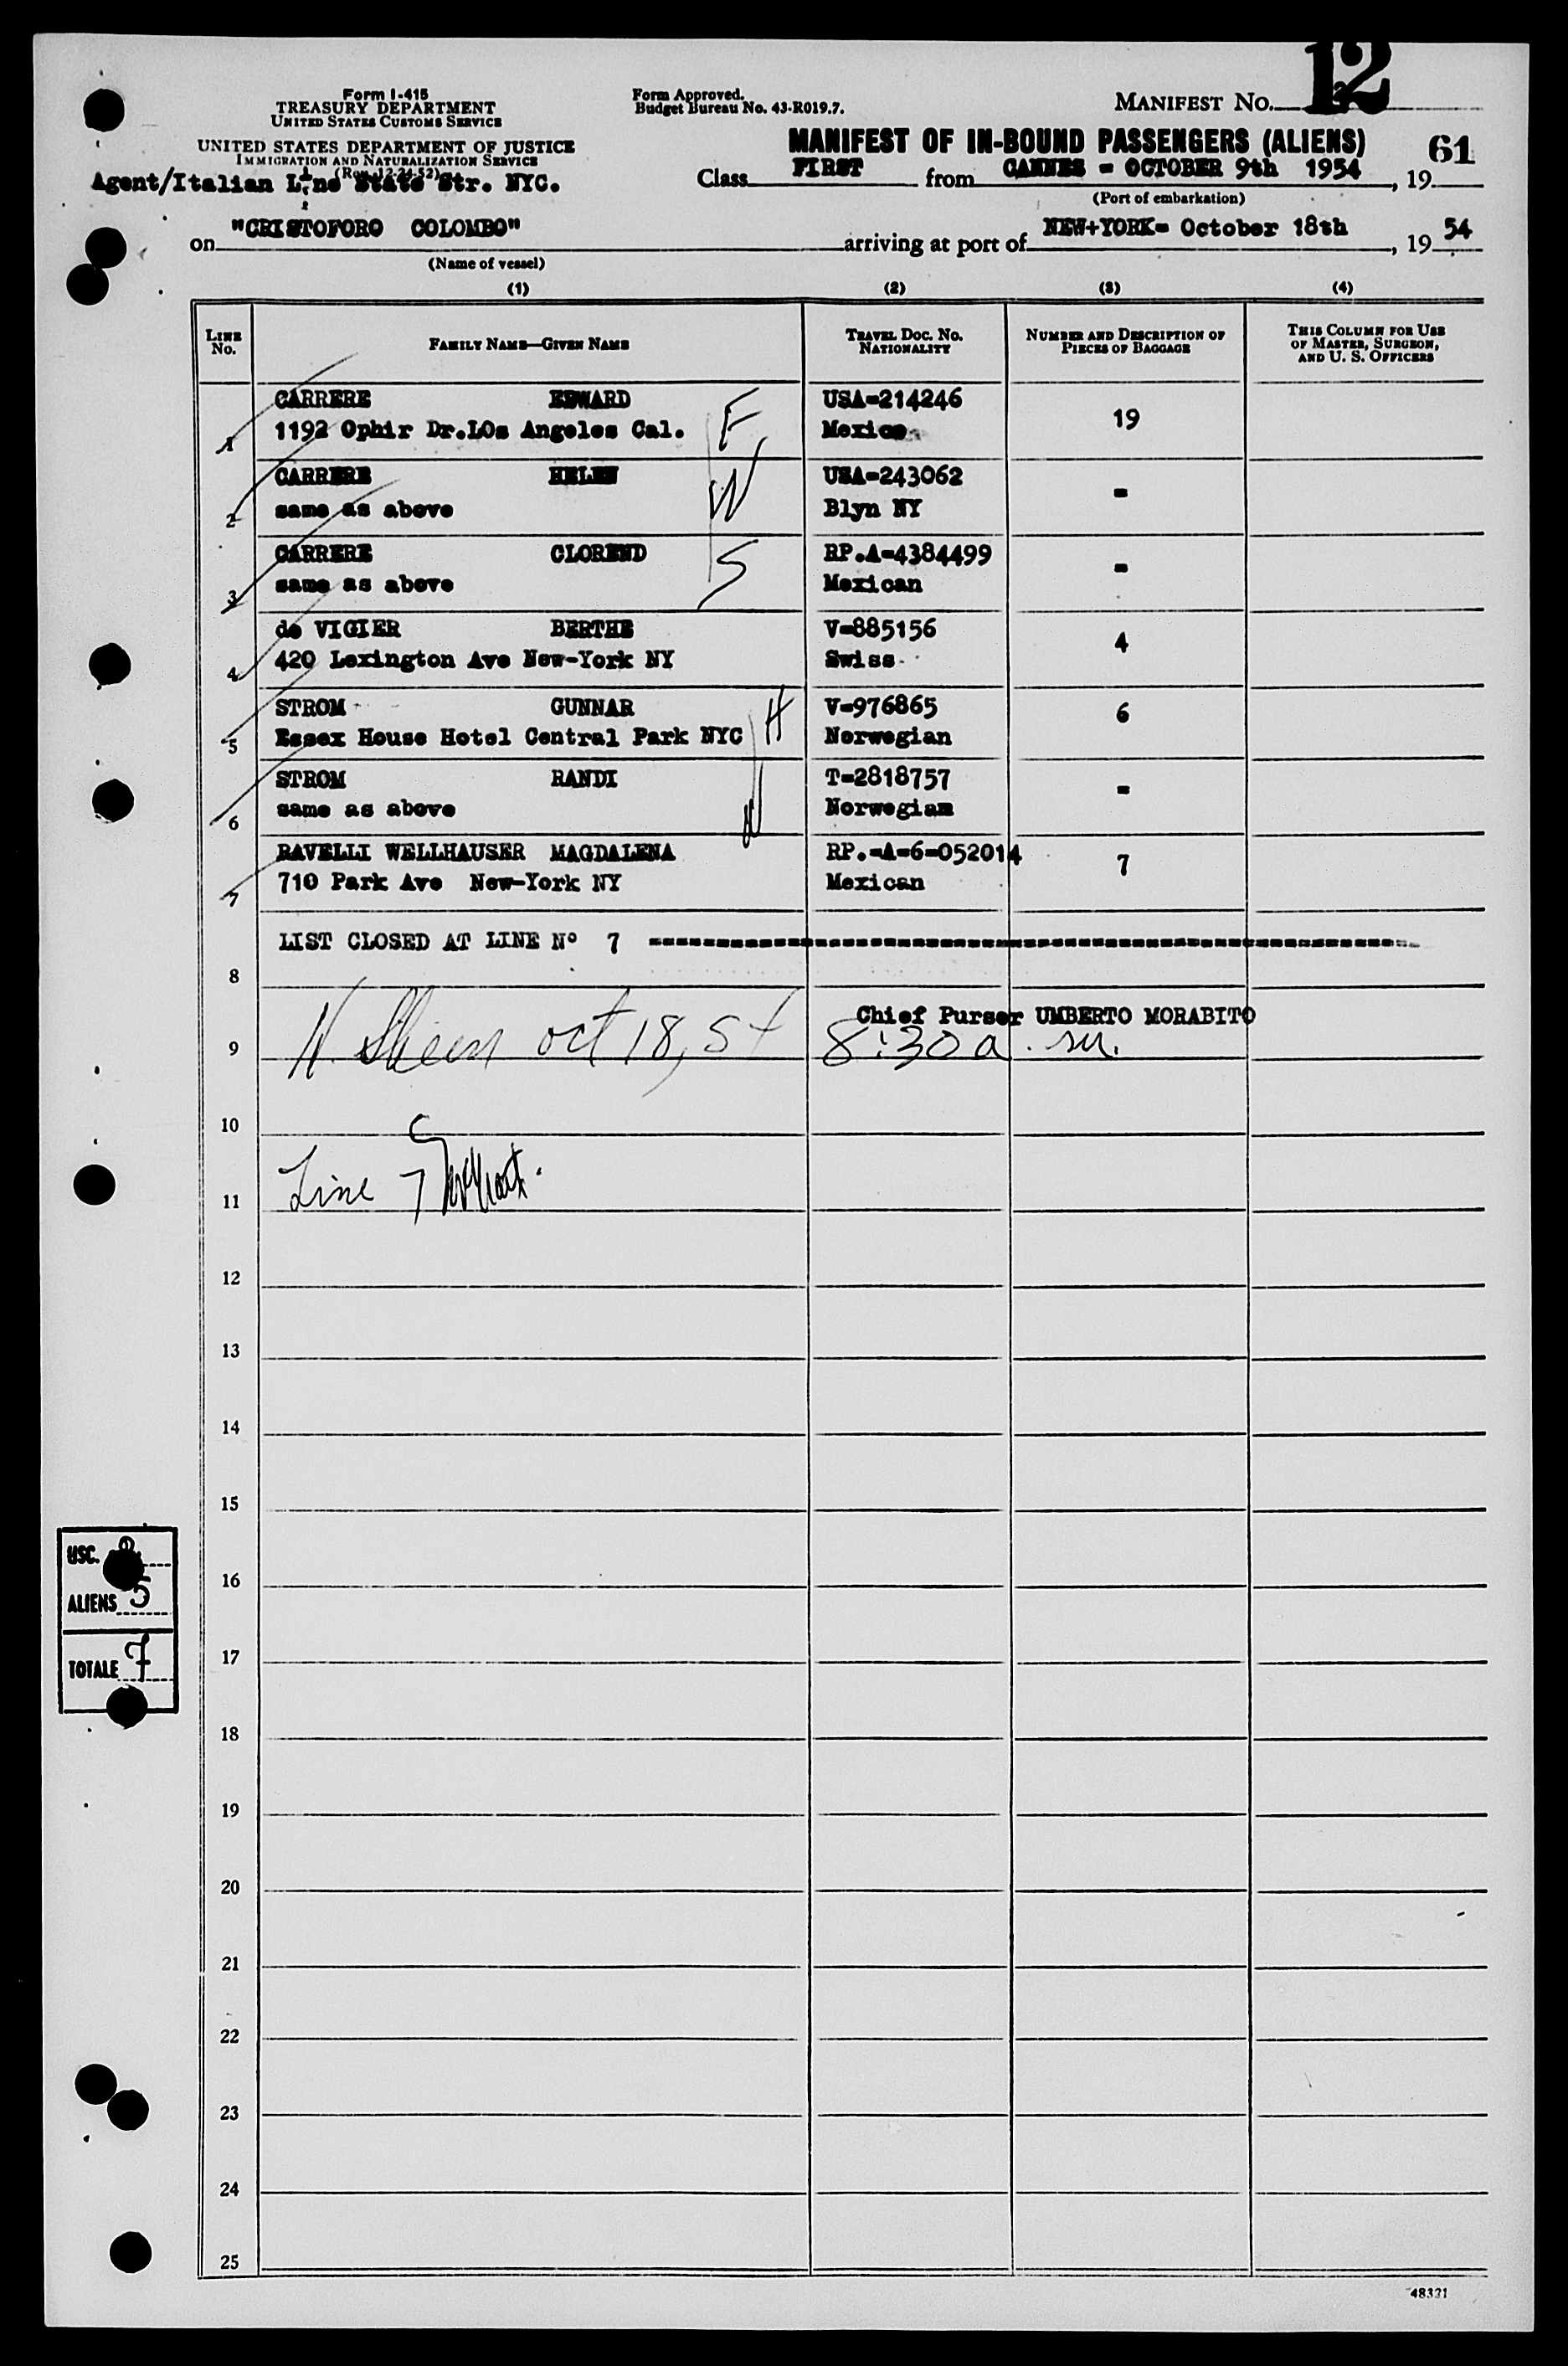 12
Form I-415
TREASURY DEPARTMENT
UNITED STATES CUSTOMS SERVICE
UNITED STATES DEPARTMENT OF JUSTICE
IMMIGRATION AND NATURALIZATION SERVICE
(Rev. 12-24-52)
Agent/Italian Line State Str. NYC.
Form Approved.
Budget Bureau No. 43-R019.7.
MANIFEST NO.
MANIFEST OF IN-BOUND PASSENGERS (ALIENS)
61
Class FIRST from CANNES - OCTOBER 9th 1954, 19
(Port of embarkation)
on "CRISTOFORO COLOMBO" arriving at port of NEW+YORK= October 18th, 19 54
(Name of vessel)
(1) (2) (3) (4)
LINE NO. FAMILY NAME—GIVEN NAME TRAVEL DOC. NO. NATIONALITY NUMBER AND DESCRIPTION OF PIECES OF BAGGAGE THIS COLUMN FOR USE OF MASTER, SURGEON, AND U. S. OFFICERS
CARRERE EDWARD F USA=214246 19
1 1192 Ophir Dr.LOs Angeles Cal. Mexico
CARRERE HELEN W USA=243062 =
2 same as above Blyn NY
CARRERE CLOREND S RP.A=4384499 =
3 same as above Mexican
de VIGIER BERTHE V=885156 4
4 420 Lexington Ave New-York NY Swiss
STROM GUNNAR H V=976865 6
5 Essex House Hotel Central Park NYC Norwegian
STROM RANDI W T=2818757 =
6 same as above Norwegian
RAVELLI WELLHAUSER MAGDALENA RP.=A=6=052014 7
7 710 Park Ave New-York NY Mexican
LIST CLOSED AT LINE Nº 7
8
Chief Purser UMBERTO MORABITO
9 oct 18, 54 8:30 a.m.
10
11 Line 7
12
13
14
15
USC. 2
16
ALIENS 5
17
TOTALE 7
18
19
20
21
22
23
24
25
48321